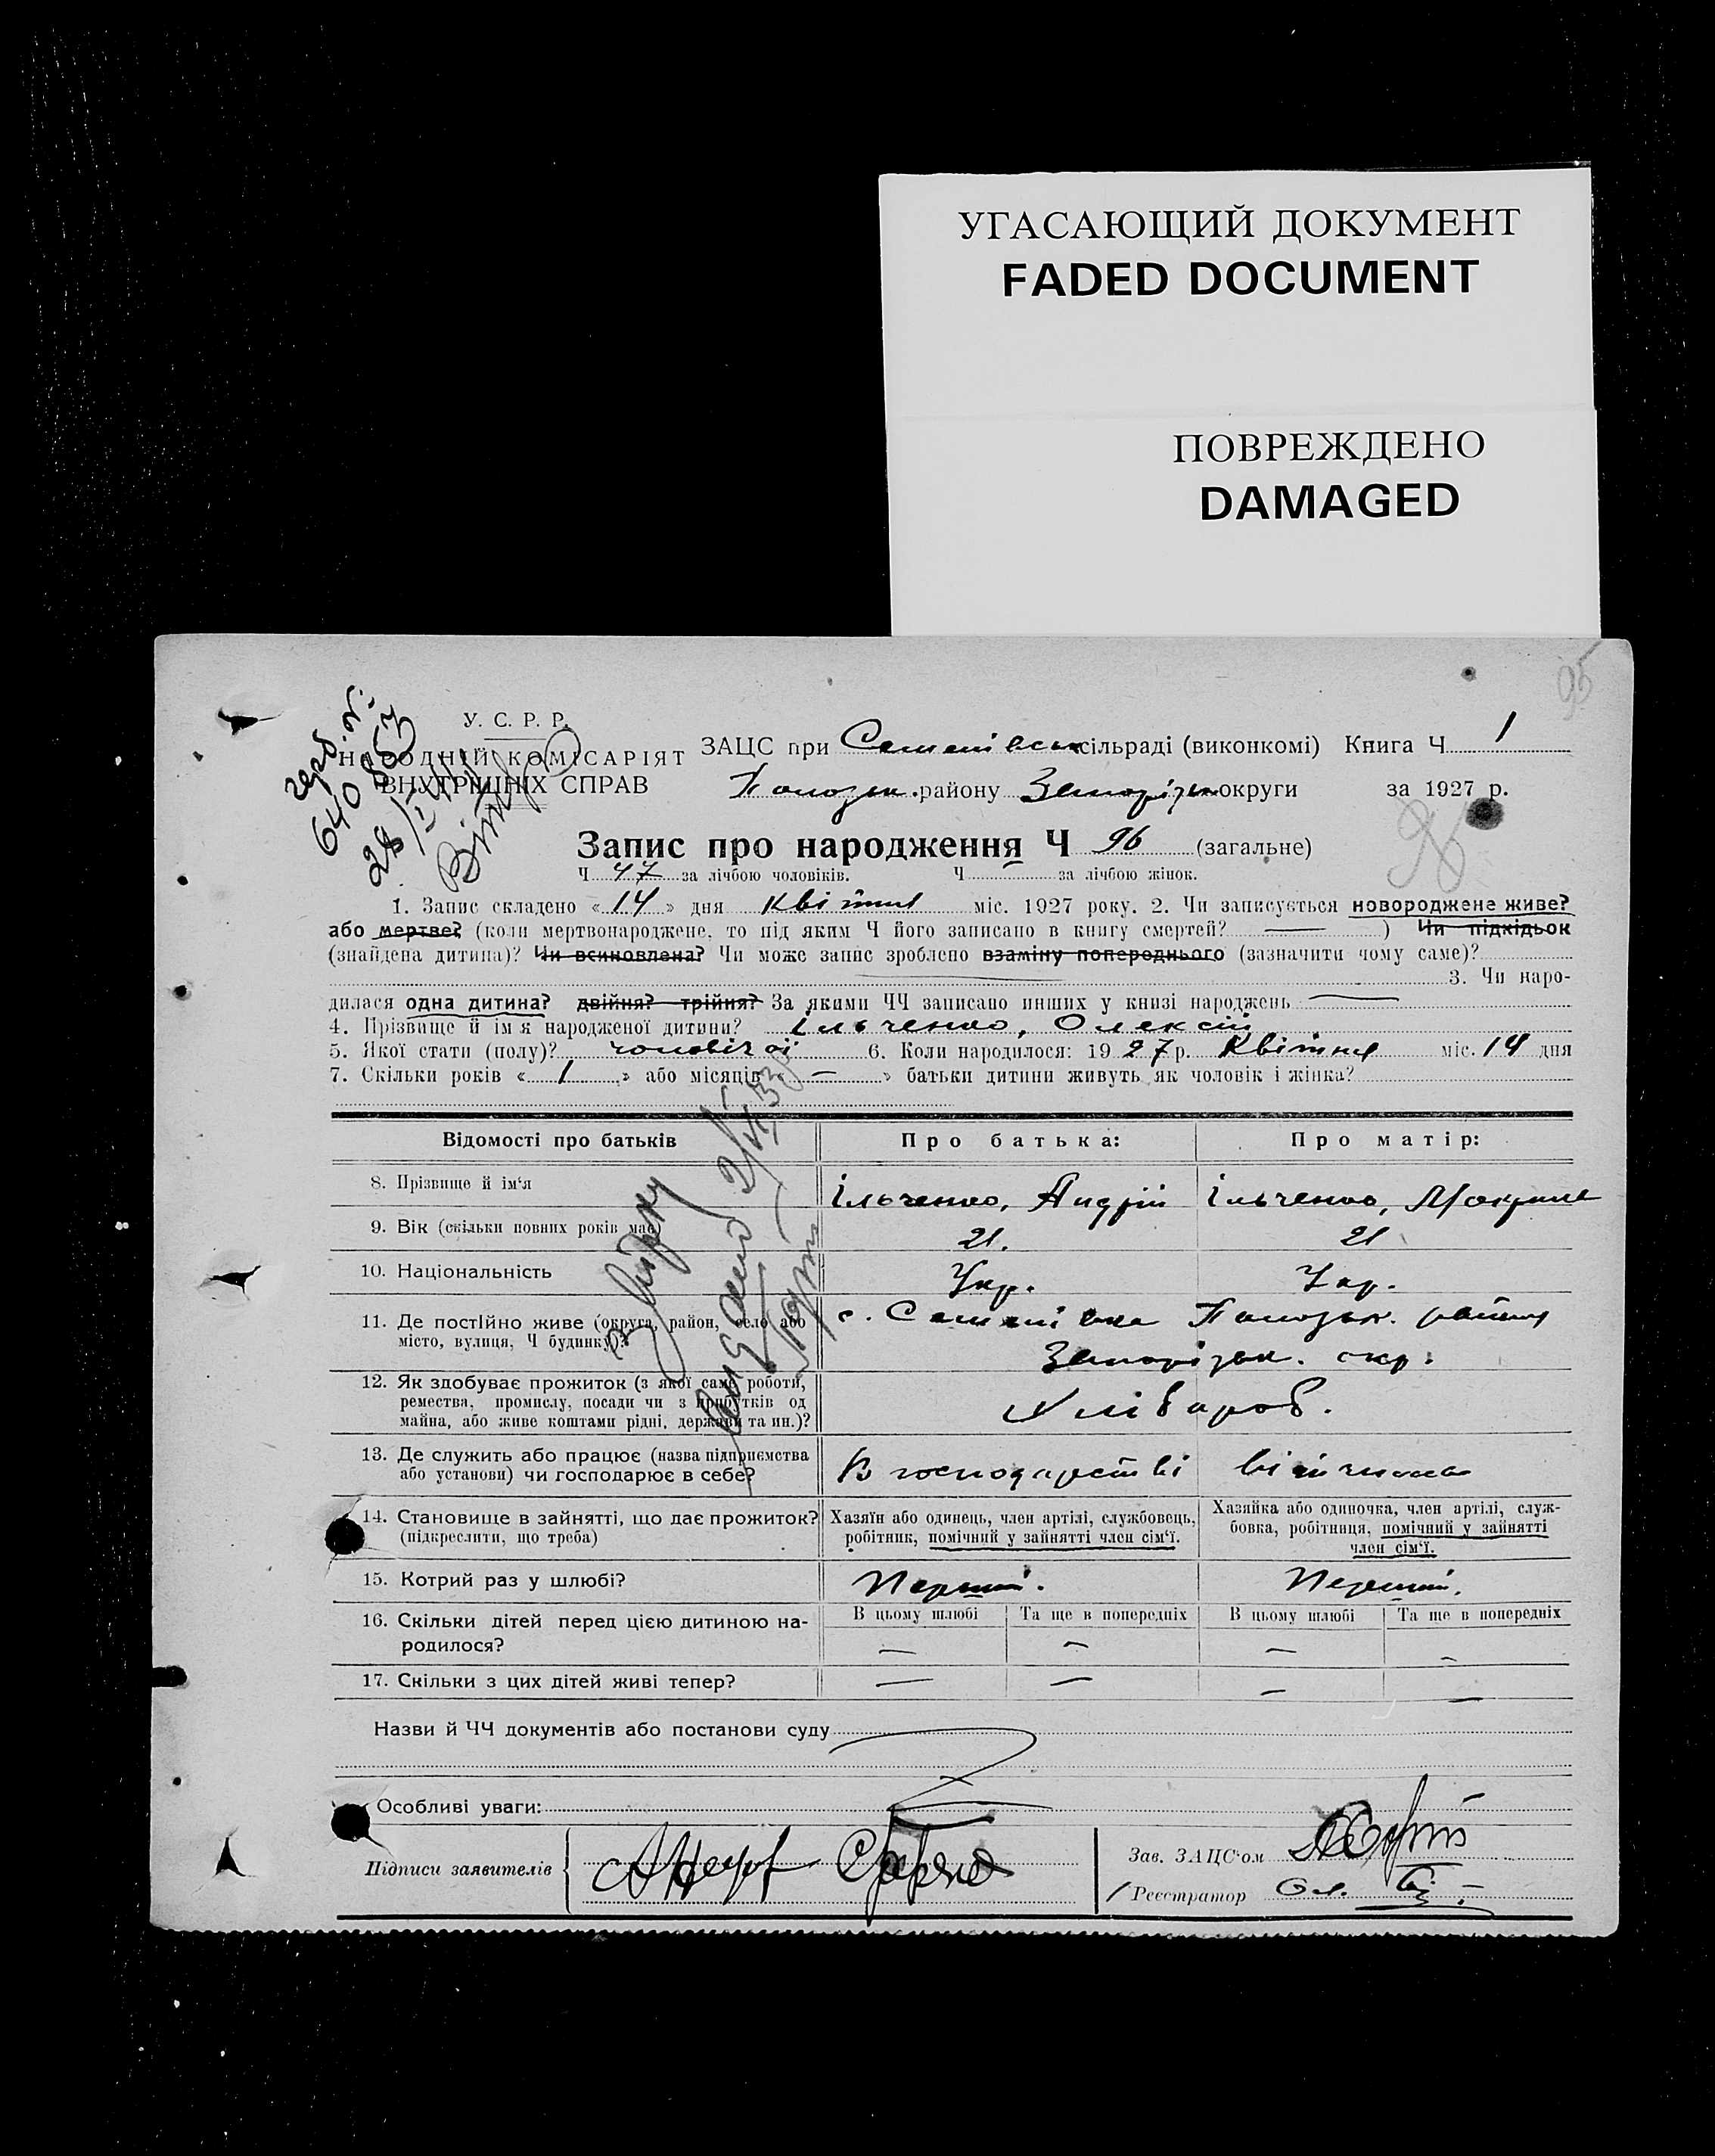 УГАСАЮЩИЙ ДОКУМЕНТ
FADED DOCUMENT
ПОВРЕЖДЕНО
DAMAGED
95
герб. №:
640852
28/I 41
У. С. Р. Р.
НАРОДНІЙ КОМІСАРІЯТ
ВНУТРІШНІХ СПРАВ
ЗАЦС при Семенівськ сільраді (виконкомі) Книга Ч 1
району Запорізьк округи за 1927 р.
Запис про народження Ч 96 (загальне)
Ч 47 за лічбою чоловіків. Ч за лічбою жінок.
1. Запис складено « 14 » дня Квітня міс. 1927 року. 2. Чи записується новороджене живе?
або мертве? (коли мертвонароджене, то під яким Ч його записано в книгу смертей? — ) Чи підкідьок
(знайдена дитина)? Чи всиновлена? Чи може запис зроблено взаміну попереднього (зазначити чому саме)?
3. Чи наро-
дилася одна дитина? двійня? трійня? За якими ЧЧ записано инших у книзі народжень —
4. Прізвище й ім'я народженої дитини? Ільченко, Олексій
5. Якої стати (полу)? чоловічої 6. Коли народилося: 19 27 р. Квітня міс. 14 дня
7. Скільки років « 1 » або місяців — » батьки дитини живуть як чоловік і жінка?
Відомості про батьків Про батька: Про матір:
8. Прізвище й ім'я Ільченко, Андрій Ільченко, Мокрина
9. Вік (скільки повних років має) 21. 21
10. Національність Укр. Укр.
11. Де постійно живе (округа, район, село або с. Семенівка району
місто, вулиця, Ч будинку)? Запорізьк. окр.
12. Як здобуває прожиток (з якої саме роботи,
ремества, промислу, посади чи з прибутків од Хлібороб.
майна, або живе коштами рідні, держави та ин.)?
13. Де служить або працює (назва підприємства
або установи) чи господарює в себе? В господарстві вітчима
14. Становище в зайнятті, що дає прожиток? Хазяїн або одинець, член артілі, службовець, Хазяйка або одиночка, член артілі, служ-
(підкреслити, що треба) робітник, помічний у зайнятті член сім'ї. бовка, робітниця, помічний у зайнятті
член сім'ї.
15. Котрий раз у шлюбі? Перший. Перший.
16. Скільки дітей перед цією дитиною на- В цьому шлюбі Та ще в попередніх В цьому шлюбі Та ще в попередніх
родилося? — — — —
17. Скільки з цих дітей живі тепер? — — — —
Назви й ЧЧ документів або постанови суду
Особливі уваги:
Підписи заявителів
Зав. ЗАЦС'ом
Реєстратор